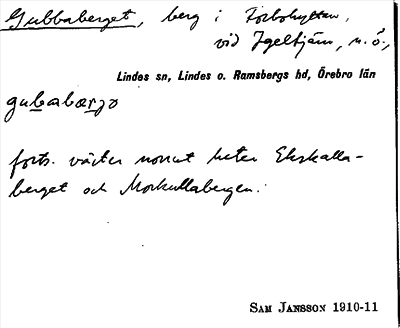 Gubbaberget, berg i Torbohyttan,
vid Igeltjärn, n.ö.,
Lindes sn, Lindes o. Ramsbergs hd, Örebro län
gubabærjə
forts. väster norrut heter Ekskalla-
berget och Morkullabergen.
SAM JANSSON 1910-11